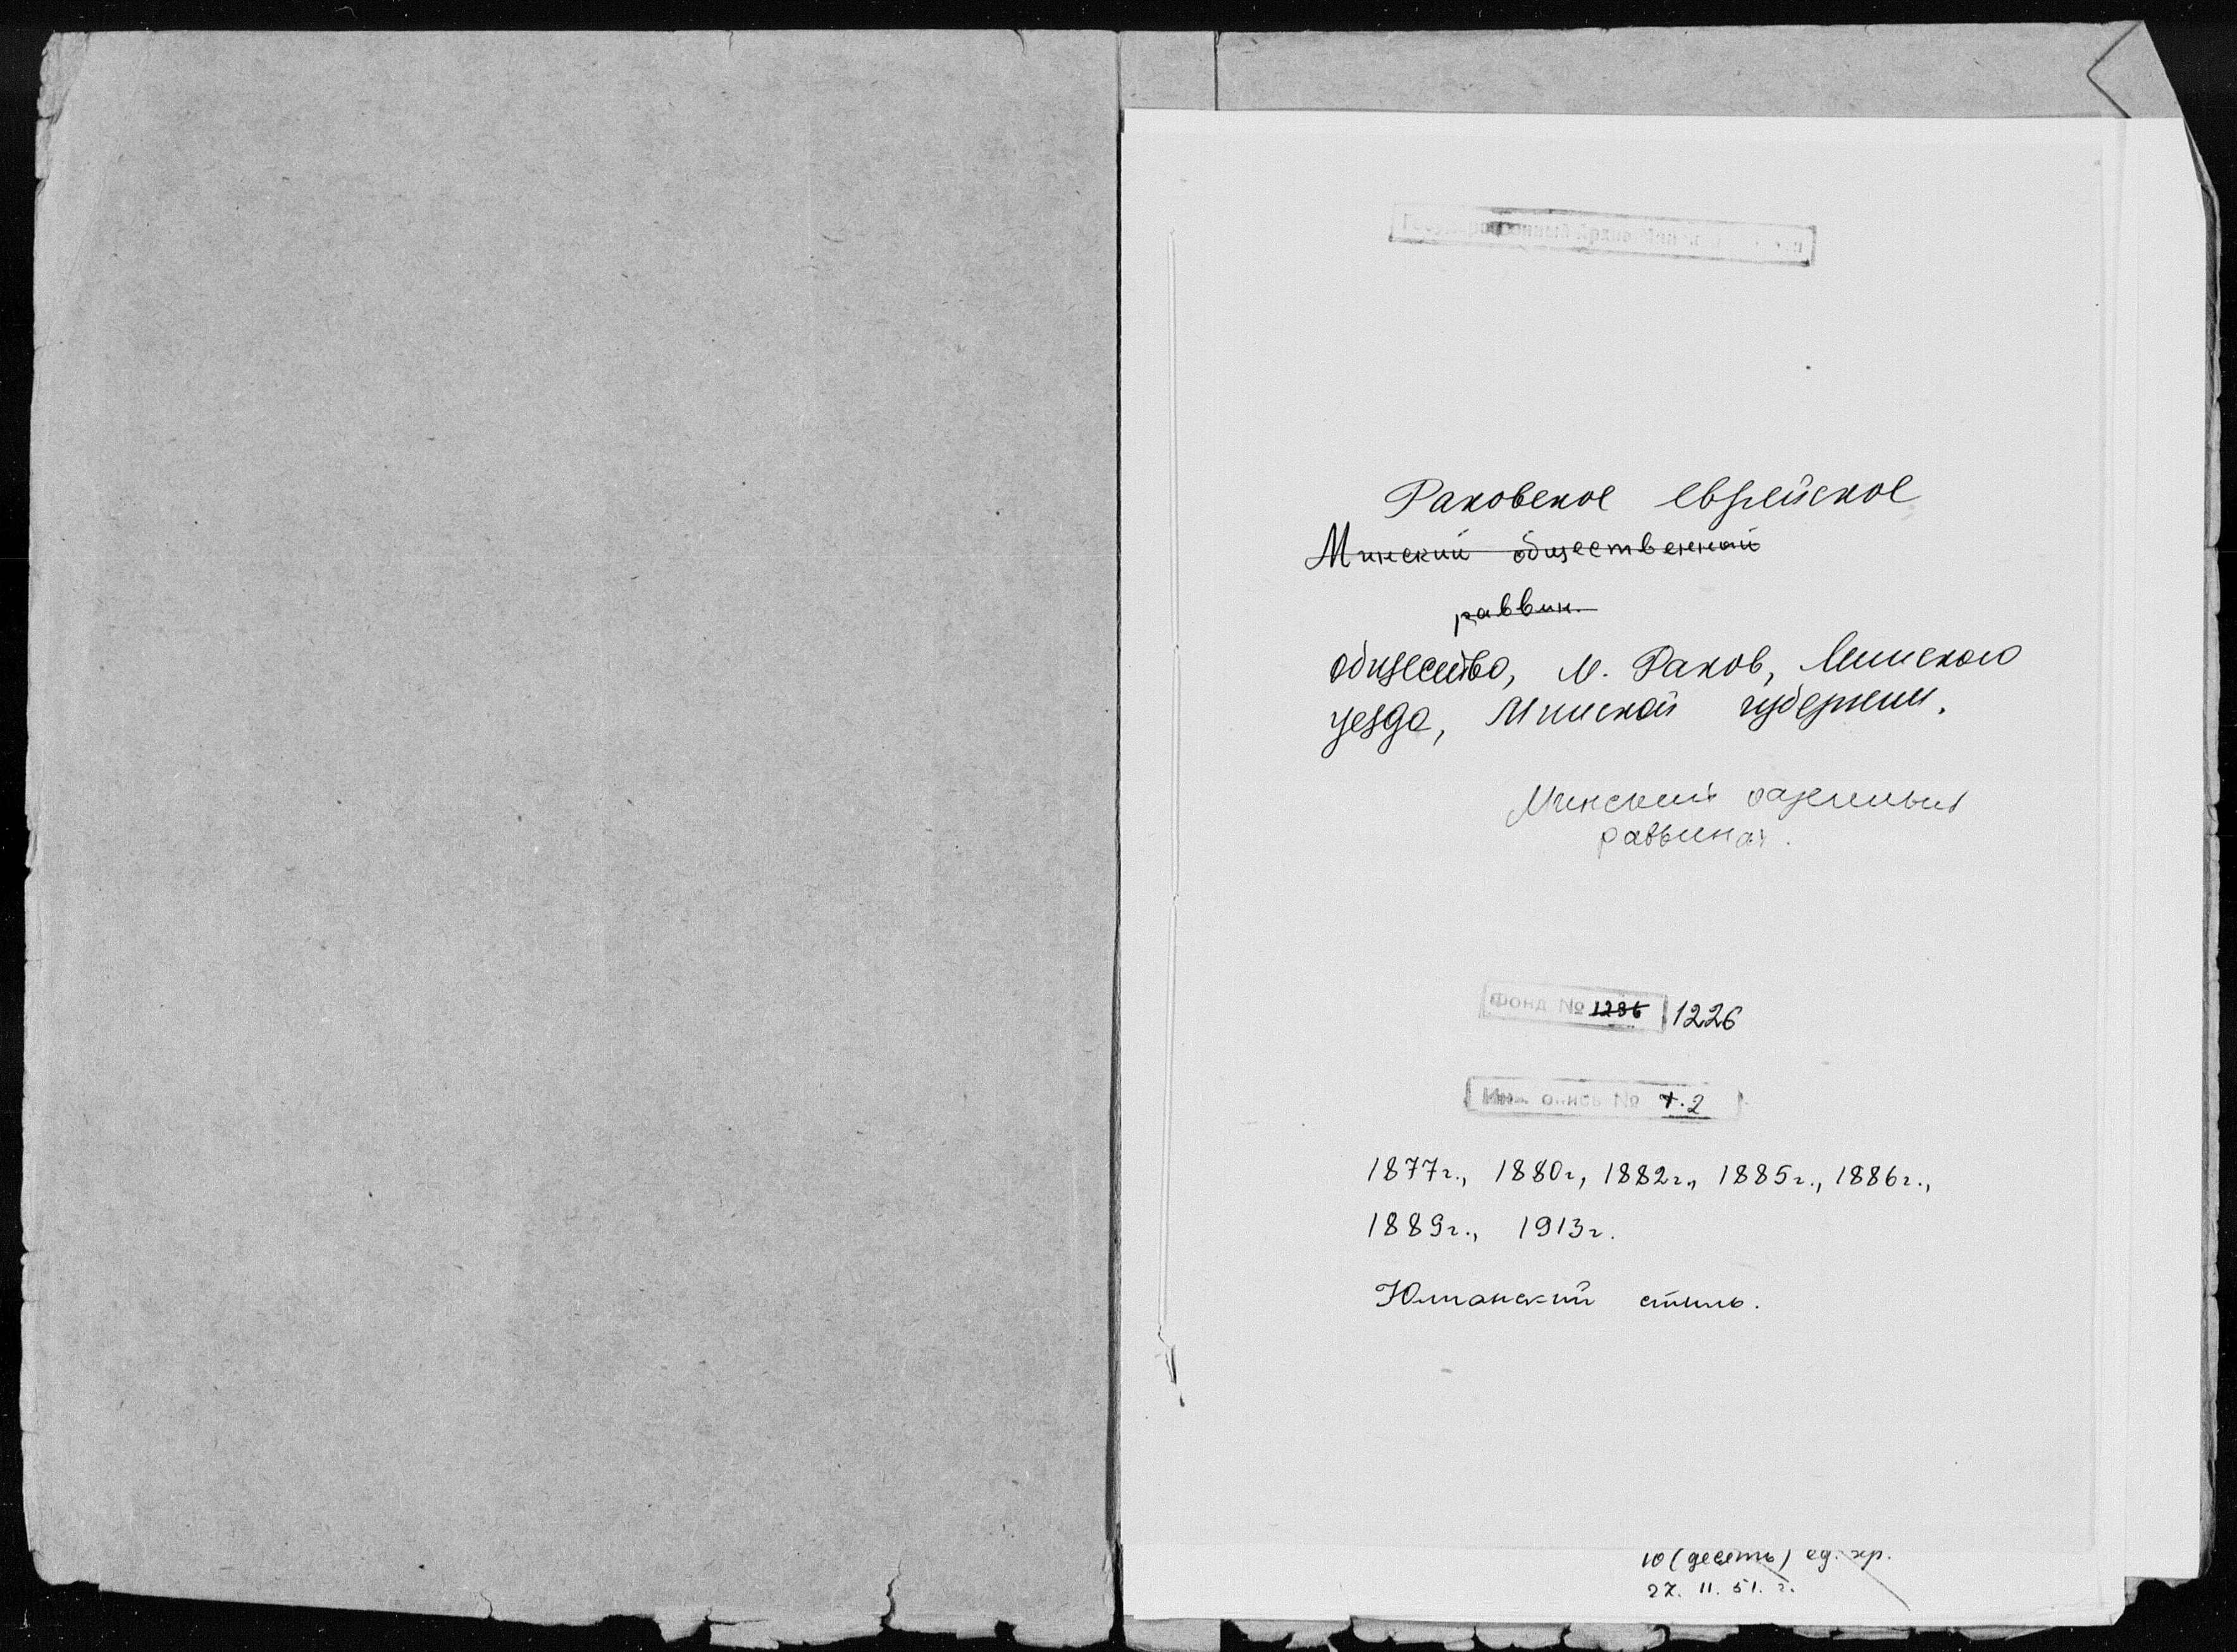 Раковское еврейское
Минский общественный
раввин.
общество, м. Раков, Минского
уезда, Минской губернии.
Минский
раввинат.
Фонд № 1286 1226
опись № т.2
1877г., 1880г, 1882г., 1885г., 1886г.,
1889г., 1913г.
Юлианский стиль.
10 (десять) ед. хр.
27. 11. 51. г.